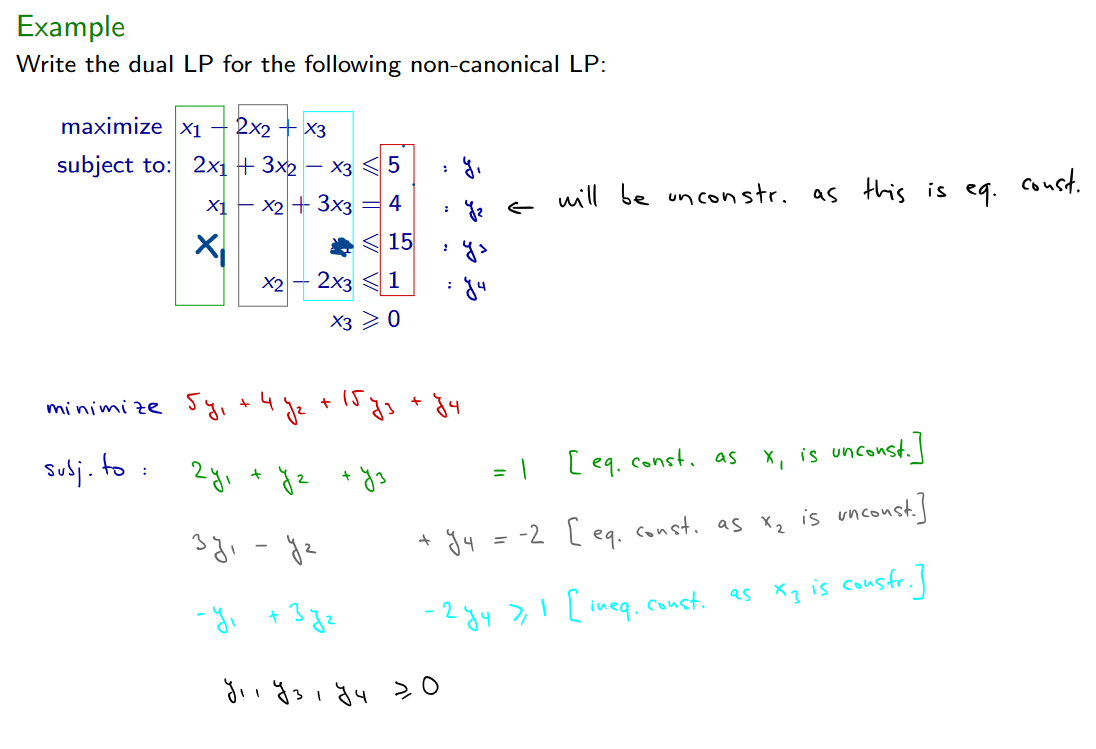 Example
Write the dual LP for the following non-canonical LP:
maximize x₁ − 2x₂ + x₃
subject to: 2x₁ + 3x₂ − x₃ ⩽ 5 : y₁
x₁ − x₂ + 3x₃ = 4 : y₂ ← will be unconstr. as this is eq. const.
x₁ ⩽ 15 : y₃
x₂ − 2x₃ ⩽ 1 : y₄
x₃ ⩾ 0
minimize 5y₁ + 4y₂ + 15y₃ + y₄
subj. to : 2y₁ + y₂ + y₃ = 1 [eq. const. as x₁ is unconst.]
3y₁ − y₂ + y₄ = -2 [eq. const. as x₂ is unconst.]
-y₁ + 3y₂ - 2y₄ ⩾ 1 [ineq. const. as x₃ is constr.]
y₁, y₃, y₄ ⩾ 0